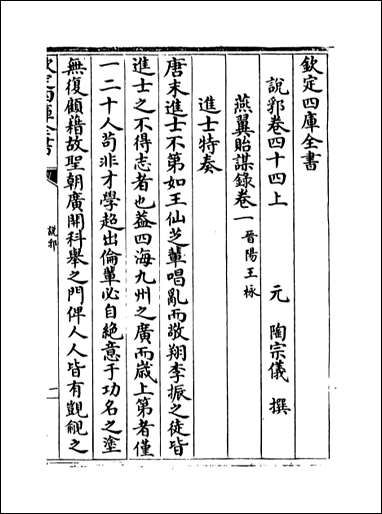 欽定四庫全書
說郛卷四十四上
元 陶宗儀 撰
燕翼貽謀錄卷一 晉陽王栐
進士特奏
唐末進士不第如王仙芝輩唱亂而敬翔李振之徒皆
進士之不得志者也蓋四海九州之廣而歲上第者僅
一二十人苟非才學超出倫輩必自絕意于功名之塗
無復顧藉故聖朝廣開科舉之門俾人人皆有覬覦之
欽定四庫全書
說郛
一